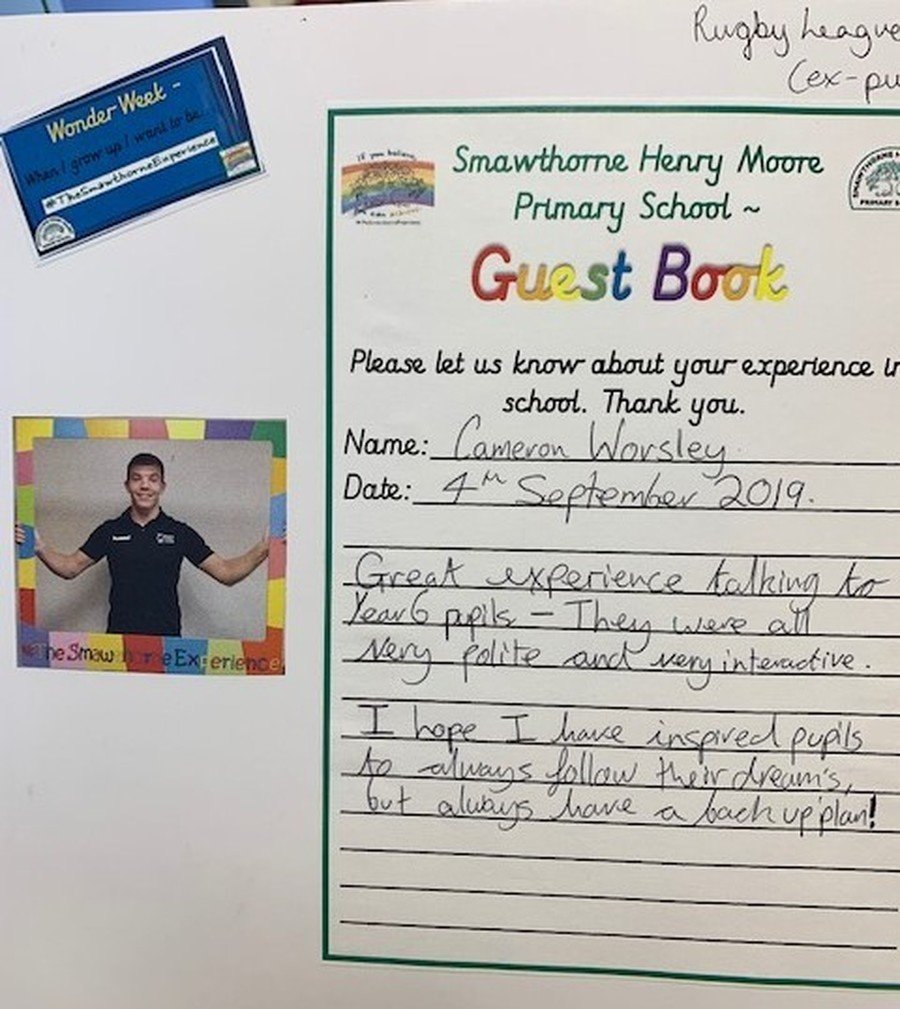 Rugby League
(ex-pu
Wonder Week -
When I grow up I want to be...
#TheSmawthorneExperience
If you believe,
Smawthorne Henry Moore
Primary School ~
PRIMARY S
Guest Book
Please let us know about your experience in
school. Thank you.
Name: Cameron Worsley.
Date: 4th September 2019.
Great experience talking to
Year 6 pupils - They were all
very polite and very interactive.
I hope I have inspired pupils
to always follow their dream's,
but always have a back up plan!
#TheSmawthorneExperience